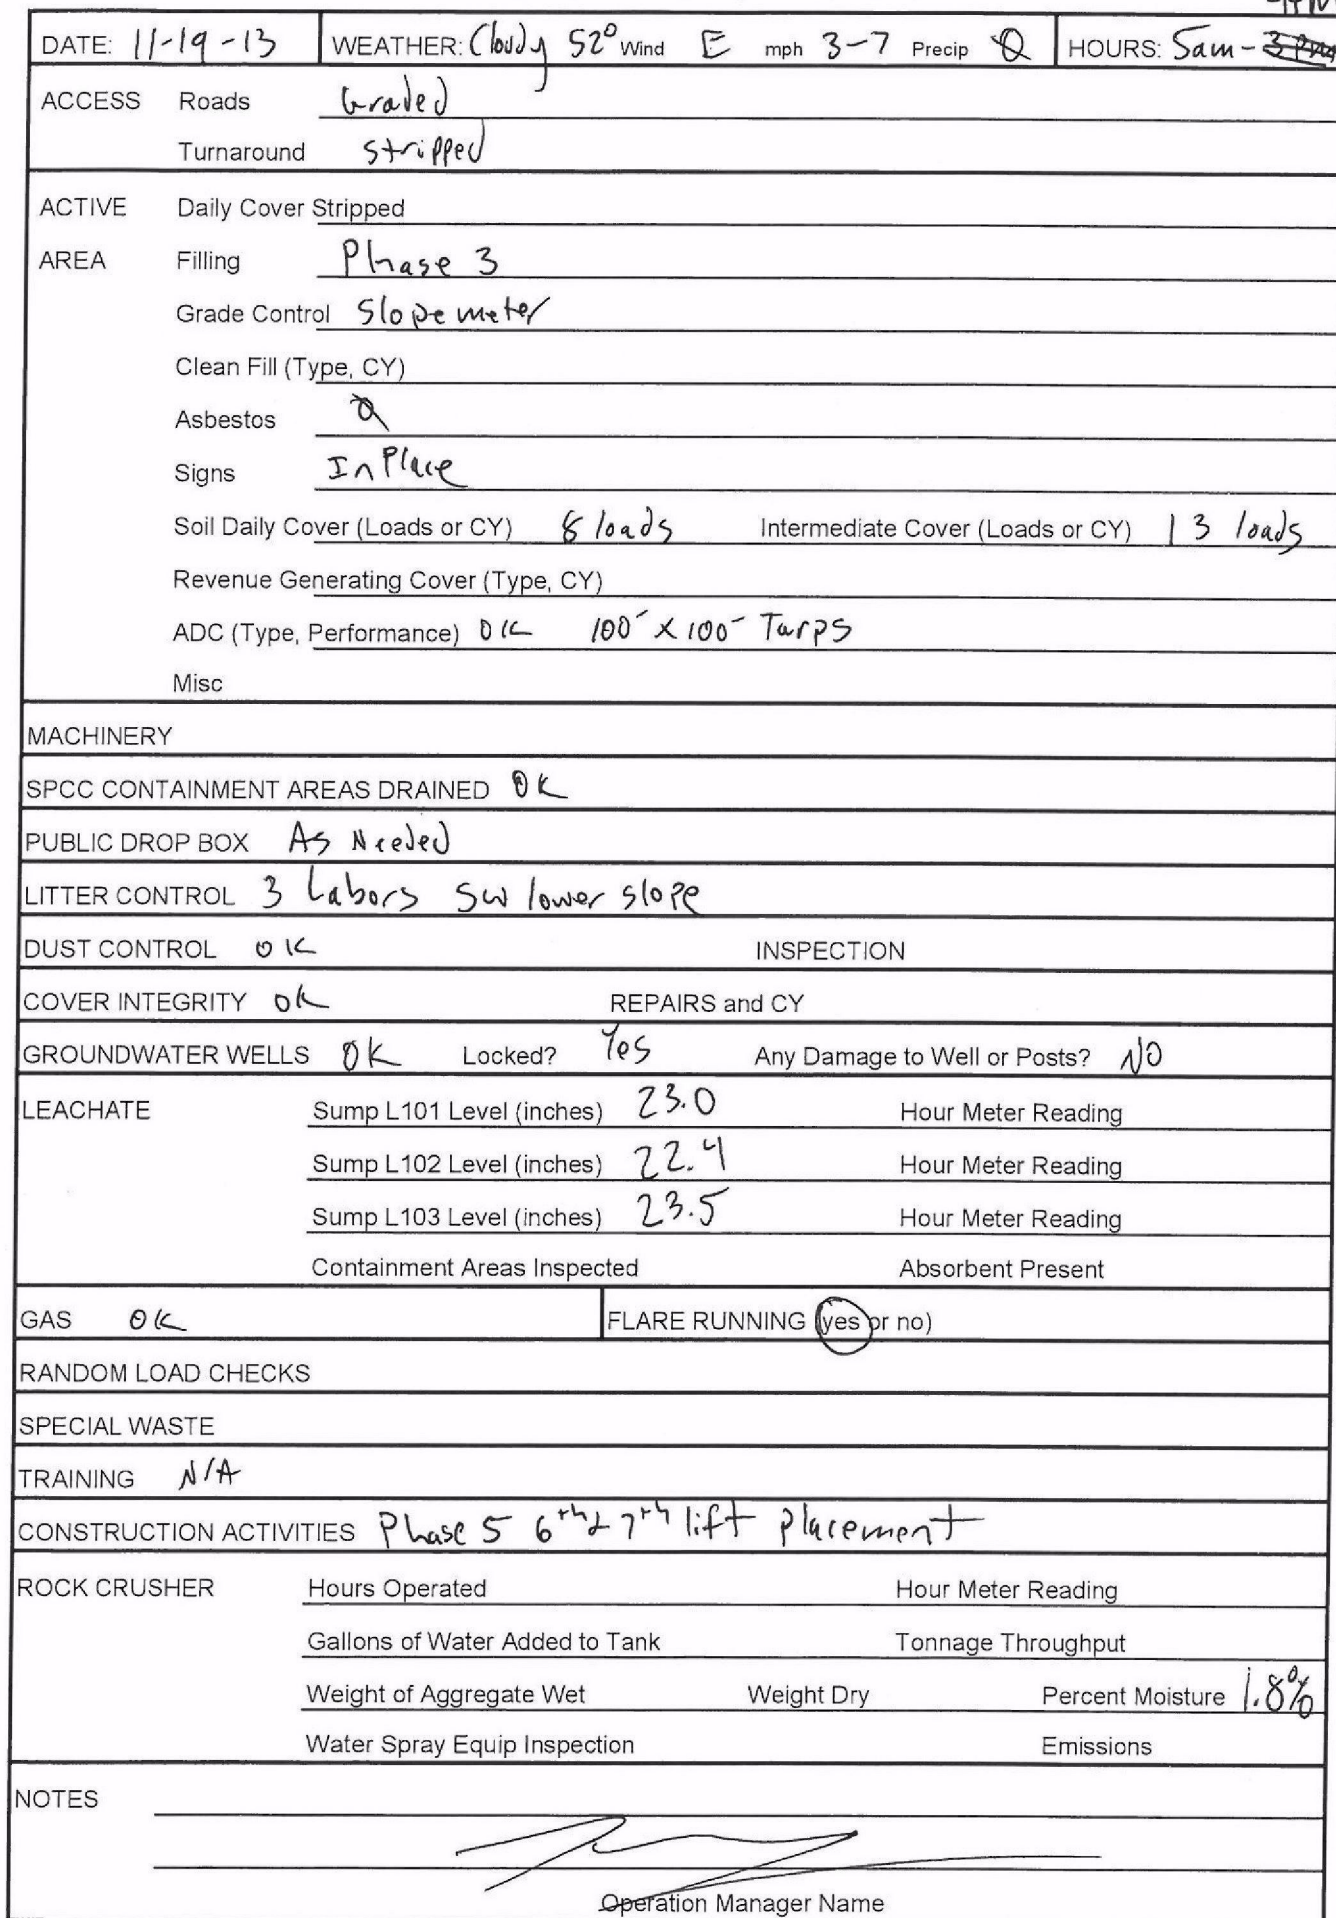 DATE: 11-19-13 WEATHER: Cloudy 52° Wind E mph 3-7 Precip Ø HOURS: 5am - 3pm
ACCESS Roads Graded
Turnaround stripped
ACTIVE Daily Cover Stripped
AREA Filling Phase 3
Grade Control Slope meter
Clean Fill (Type, CY)
Asbestos Ø
Signs In Place
Soil Daily Cover (Loads or CY) 8 loads Intermediate Cover (Loads or CY) 13 loads
Revenue Generating Cover (Type, CY)
ADC (Type, Performance) OK 100' x 100' Tarps
Misc
MACHINERY
SPCC CONTAINMENT AREAS DRAINED OK
PUBLIC DROP BOX As Needed
LITTER CONTROL 3 Labors SW lower slope
DUST CONTROL OK INSPECTION
COVER INTEGRITY OK REPAIRS and CY
GROUNDWATER WELLS OK Locked? Yes Any Damage to Well or Posts? NO
LEACHATE Sump L101 Level (inches) 23.0 Hour Meter Reading
Sump L102 Level (inches) 22.4 Hour Meter Reading
Sump L103 Level (inches) 23.5 Hour Meter Reading
Containment Areas Inspected Absorbent Present
GAS OK FLARE RUNNING (yes or no)
RANDOM LOAD CHECKS
SPECIAL WASTE
TRAINING N/A
CONSTRUCTION ACTIVITIES Phase 5 6th & 7th lift placement
ROCK CRUSHER Hours Operated Hour Meter Reading
Gallons of Water Added to Tank Tonnage Throughput
Weight of Aggregate Wet Weight Dry Percent Moisture 1.8%
Water Spray Equip Inspection Emissions
NOTES
Operation Manager Name